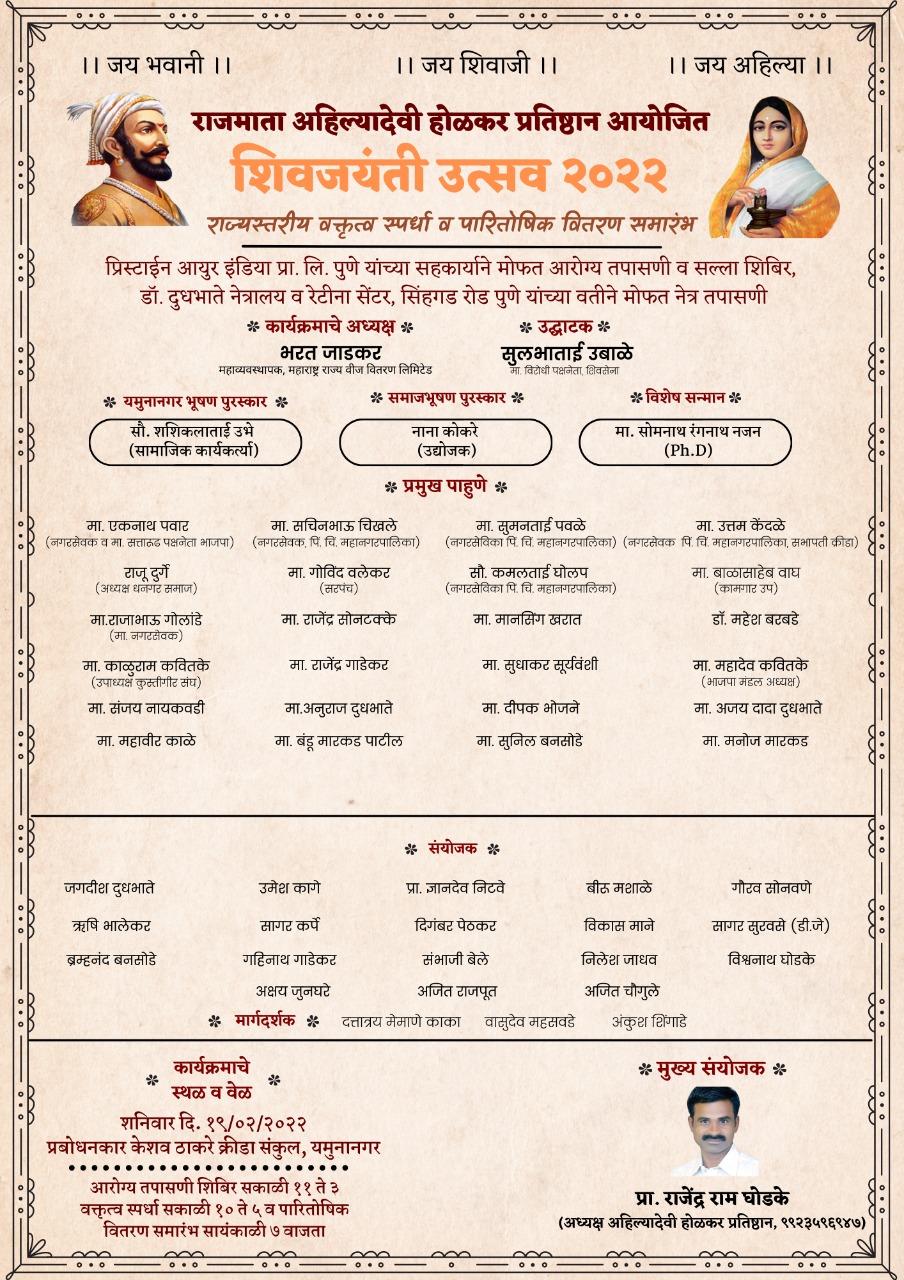 ।। जय भवानी ।। ।। जय शिवाजी ।। ।। जय अहिल्या ।।
राजमाता अहिल्यादेवी होळकर प्रतिष्ठान आयोजित
शिवजयंती उत्सव २०२२
राज्यस्तरीय वक्तृत्व स्पर्धा व पारितोषिक वितरण समारंभ
प्रिस्टाईन आयुर इंडिया प्रा. लि. पुणे यांच्या सहकार्याने मोफत आरोग्य तपासणी व सल्ला शिबिर,
डॉ. दुधभाते नेत्रालय व रेटीना सेंटर, सिंहगड रोड पुणे यांच्या वतीने मोफत नेत्र तपासणी
कार्यक्रमाचे अध्यक्ष उद्घाटक
भरत जाडकर सुलभाताई उबाळे
महाव्यवस्थापक, महाराष्ट्र राज्य वीज वितरण लिमिटेड मा. विरोधी पक्षनेता, शिवसेना
यमुनानगर भूषण पुरस्कार समाजभूषण पुरस्कार विशेष सन्मान
सौ. शशिकलाताई उभे नाना कोकरे मा. सोमनाथ रंगनाथ नजन
(सामाजिक कार्यकर्त्या) (उद्योजक) (Ph.D)
प्रमुख पाहुणे
मा. एकनाथ पवार मा. सचिनभाऊ चिखले मा. सुमनताई पवळे मा. उत्तम केंदळे
(नगरसेवक व मा. सत्तारूढ पक्षनेता भाजपा) (नगरसेवक, पिं. चिं. महानगरपालिका) (नगरसेविका पिं. चिं. महानगरपालिका) (नगरसेवक पिं. चिं. महानगरपालिका, सभापती क्रीडा)
राजू दुर्गे मा. गोविंद वलेकर सौ. कमलताई घोलप मा. बाळासाहेब वाघ
(अध्यक्ष धनगर समाज) (सरपंच) (नगरसेविका पिं. चिं. महानगरपालिका) (कामगार उप)
मा.राजाभाऊ गोलांडे मा. राजेंद्र सोनटक्के मा. मानसिंग खरात डॉ. महेश बरबडे
(मा. नगरसेवक)
मा. काळुराम कवितके मा. राजेंद्र गाडेकर मा. सुधाकर सूर्यवंशी मा. महादेव कवितके
(उपाध्यक्ष कुस्तीगीर संघ) (भाजपा मंडल अध्यक्ष)
मा. संजय नायकवडी मा.अनुराज दुधभाते मा. दीपक भोजने मा. अजय दादा दुधभाते
मा. महावीर काळे मा. बंडू मारकड पाटील मा. सुनिल बनसोडे मा. मनोज मारकड
संयोजक
जगदीश दुधभाते उमेश कागे प्रा. ज्ञानदेव निटवे बीरू मशाळे गौरव सोनवणे
ऋषि भालेकर सागर कर्पे दिगंबर पेठकर विकास माने सागर सुरवसे (डी.जे)
ब्रम्हनंद बनसोडे गहिनाथ गाडेकर संभाजी बेले निलेश जाधव विश्वनाथ घोडके
अक्षय जुनघरे अजित राजपूत अजित चौगुले
मार्गदर्शक दत्तात्रय मेमाणे काका वासुदेव महसवडे अंकुश शिंगाडे
कार्यक्रमाचे
स्थळ व वेळ
शनिवार दि. १९/०२/२०२२
प्रबोधनकार केशव ठाकरे क्रीडा संकुल, यमुनानगर
आरोग्य तपासणी शिबिर सकाळी ११ ते ३
वक्तृत्व स्पर्धा सकाळी १० ते ५ व पारितोषिक
वितरण समारंभ सायंकाळी ७ वाजता
मुख्य संयोजक
प्रा. राजेंद्र राम घोडके
(अध्यक्ष अहिल्यादेवी होळकर प्रतिष्ठान, ९९२३५९६९४७)